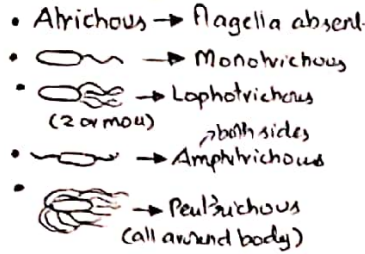 • Atrichous → flagella absent.
• → Monotrichous
• → Lophotrichous
(2 or more)
both sides
• → Amphitrichous
• → Peritrichous
(all around body)